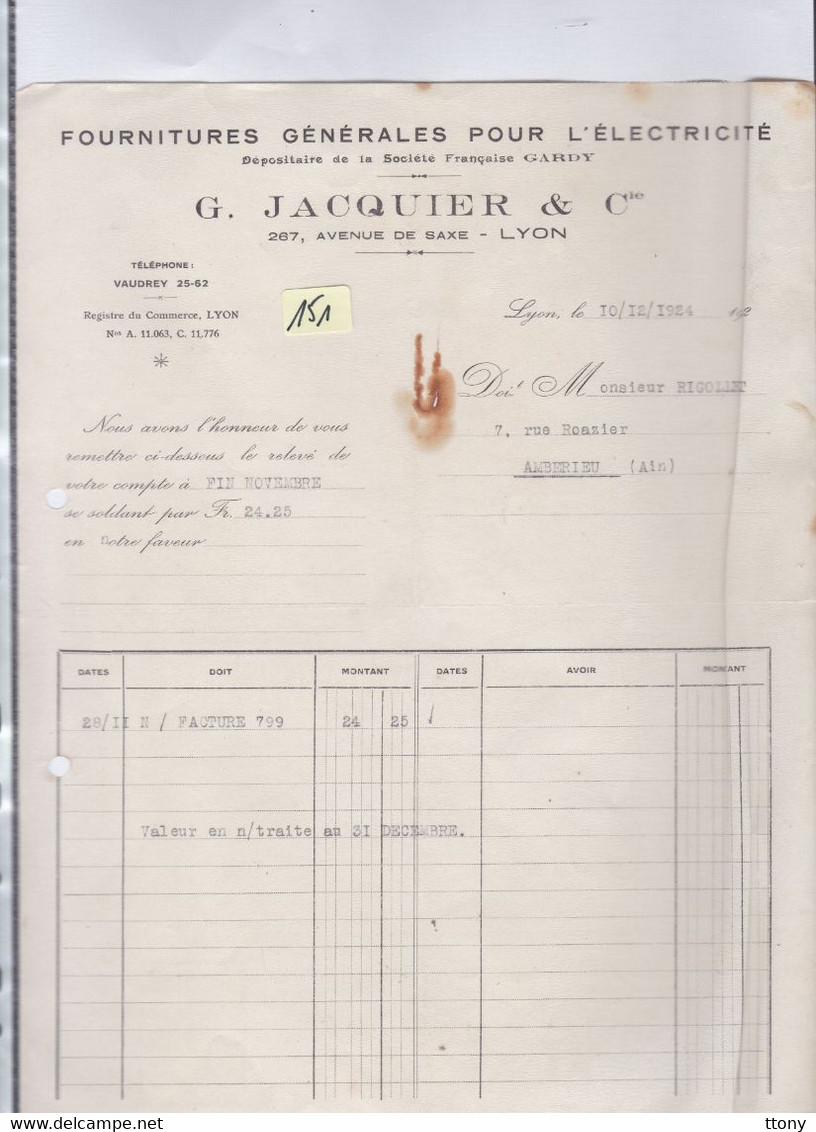 FOURNITURES GÉNÉRALES POUR L'ÉLECTRICITÉ
Dépositaire de la Société Française GARDY
G. JACQUIER & Cie
267, AVENUE DE SAXE - LYON
TÉLÉPHONE :
VAUDREY 25-62
Registre du Commerce, LYON
Nos A. 11.063, C. 11.776
151
Lyon, le 10/12/1924 192
Doit Monsieur RIGOLLET
7, rue Roazier
AMBERIEU (Ain)
Nous avons l'honneur de vous
remettre ci-dessous le relevé de
votre compte à FIN NOVEMBRE
se soldant par Fr. 24.25
en notre faveur
DATES DOIT MONTANT DATES AVOIR MONTANT
28/II N / FACTURE 799 24 25
Valeur en n/traite au 3I DECEMBRE.
Delcampe.net
ttony